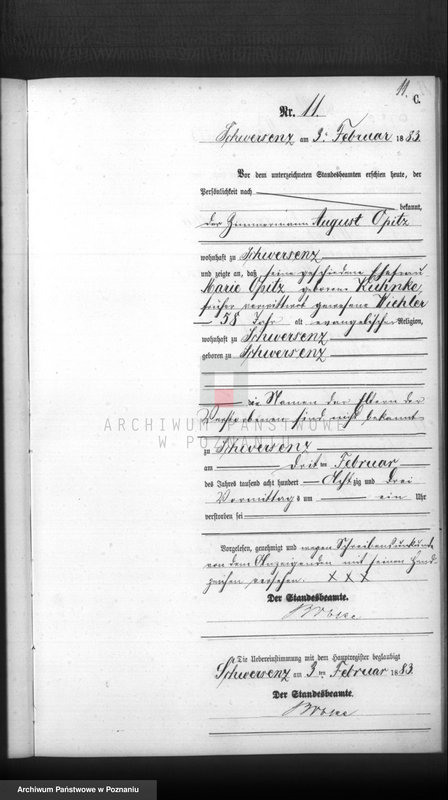 11.
C.
Nr. 11.
Schwersenz am 3. Februar 1883.
Vor dem unterzeichneten Standesbeamten erschien heute, der
Persönlichkeit nach
bekannt,
der Zimmermann August Opitz
wohnhaft zu Schwersenz
und zeigte an, daß seine geschiedene Ehefrau
Marie Opitz geborene Kuhnke,
früher verwittwet gewesene Wichler
58 Jahr alt evangelischer Religion,
wohnhaft zu Schwersenz
geboren zu Schwersenz
die Namen der Eltern der
Verstorbenen sind nicht bekannt
ARCHIWUM PAŃSTWOWE
W POZNANIU
zu Schwersenz
am drit ten Februar
des Jahres tausend acht hundert Acht zig und drei
Vormittag s um ein Uhr
verstorben sei
Vorgelesen, genehmigt und wegen Schreibensunkunde
von dem Anzeigenden mit seinen Hand-
zeichen versehen. X X X
Der Standesbeamte.
Die Uebereinstimmung mit dem Hauptregister beglaubigt
Schwersenz am 3 ten Februar 1883.
Der Standesbeamte.
Archiwum Państwowe w Poznaniu